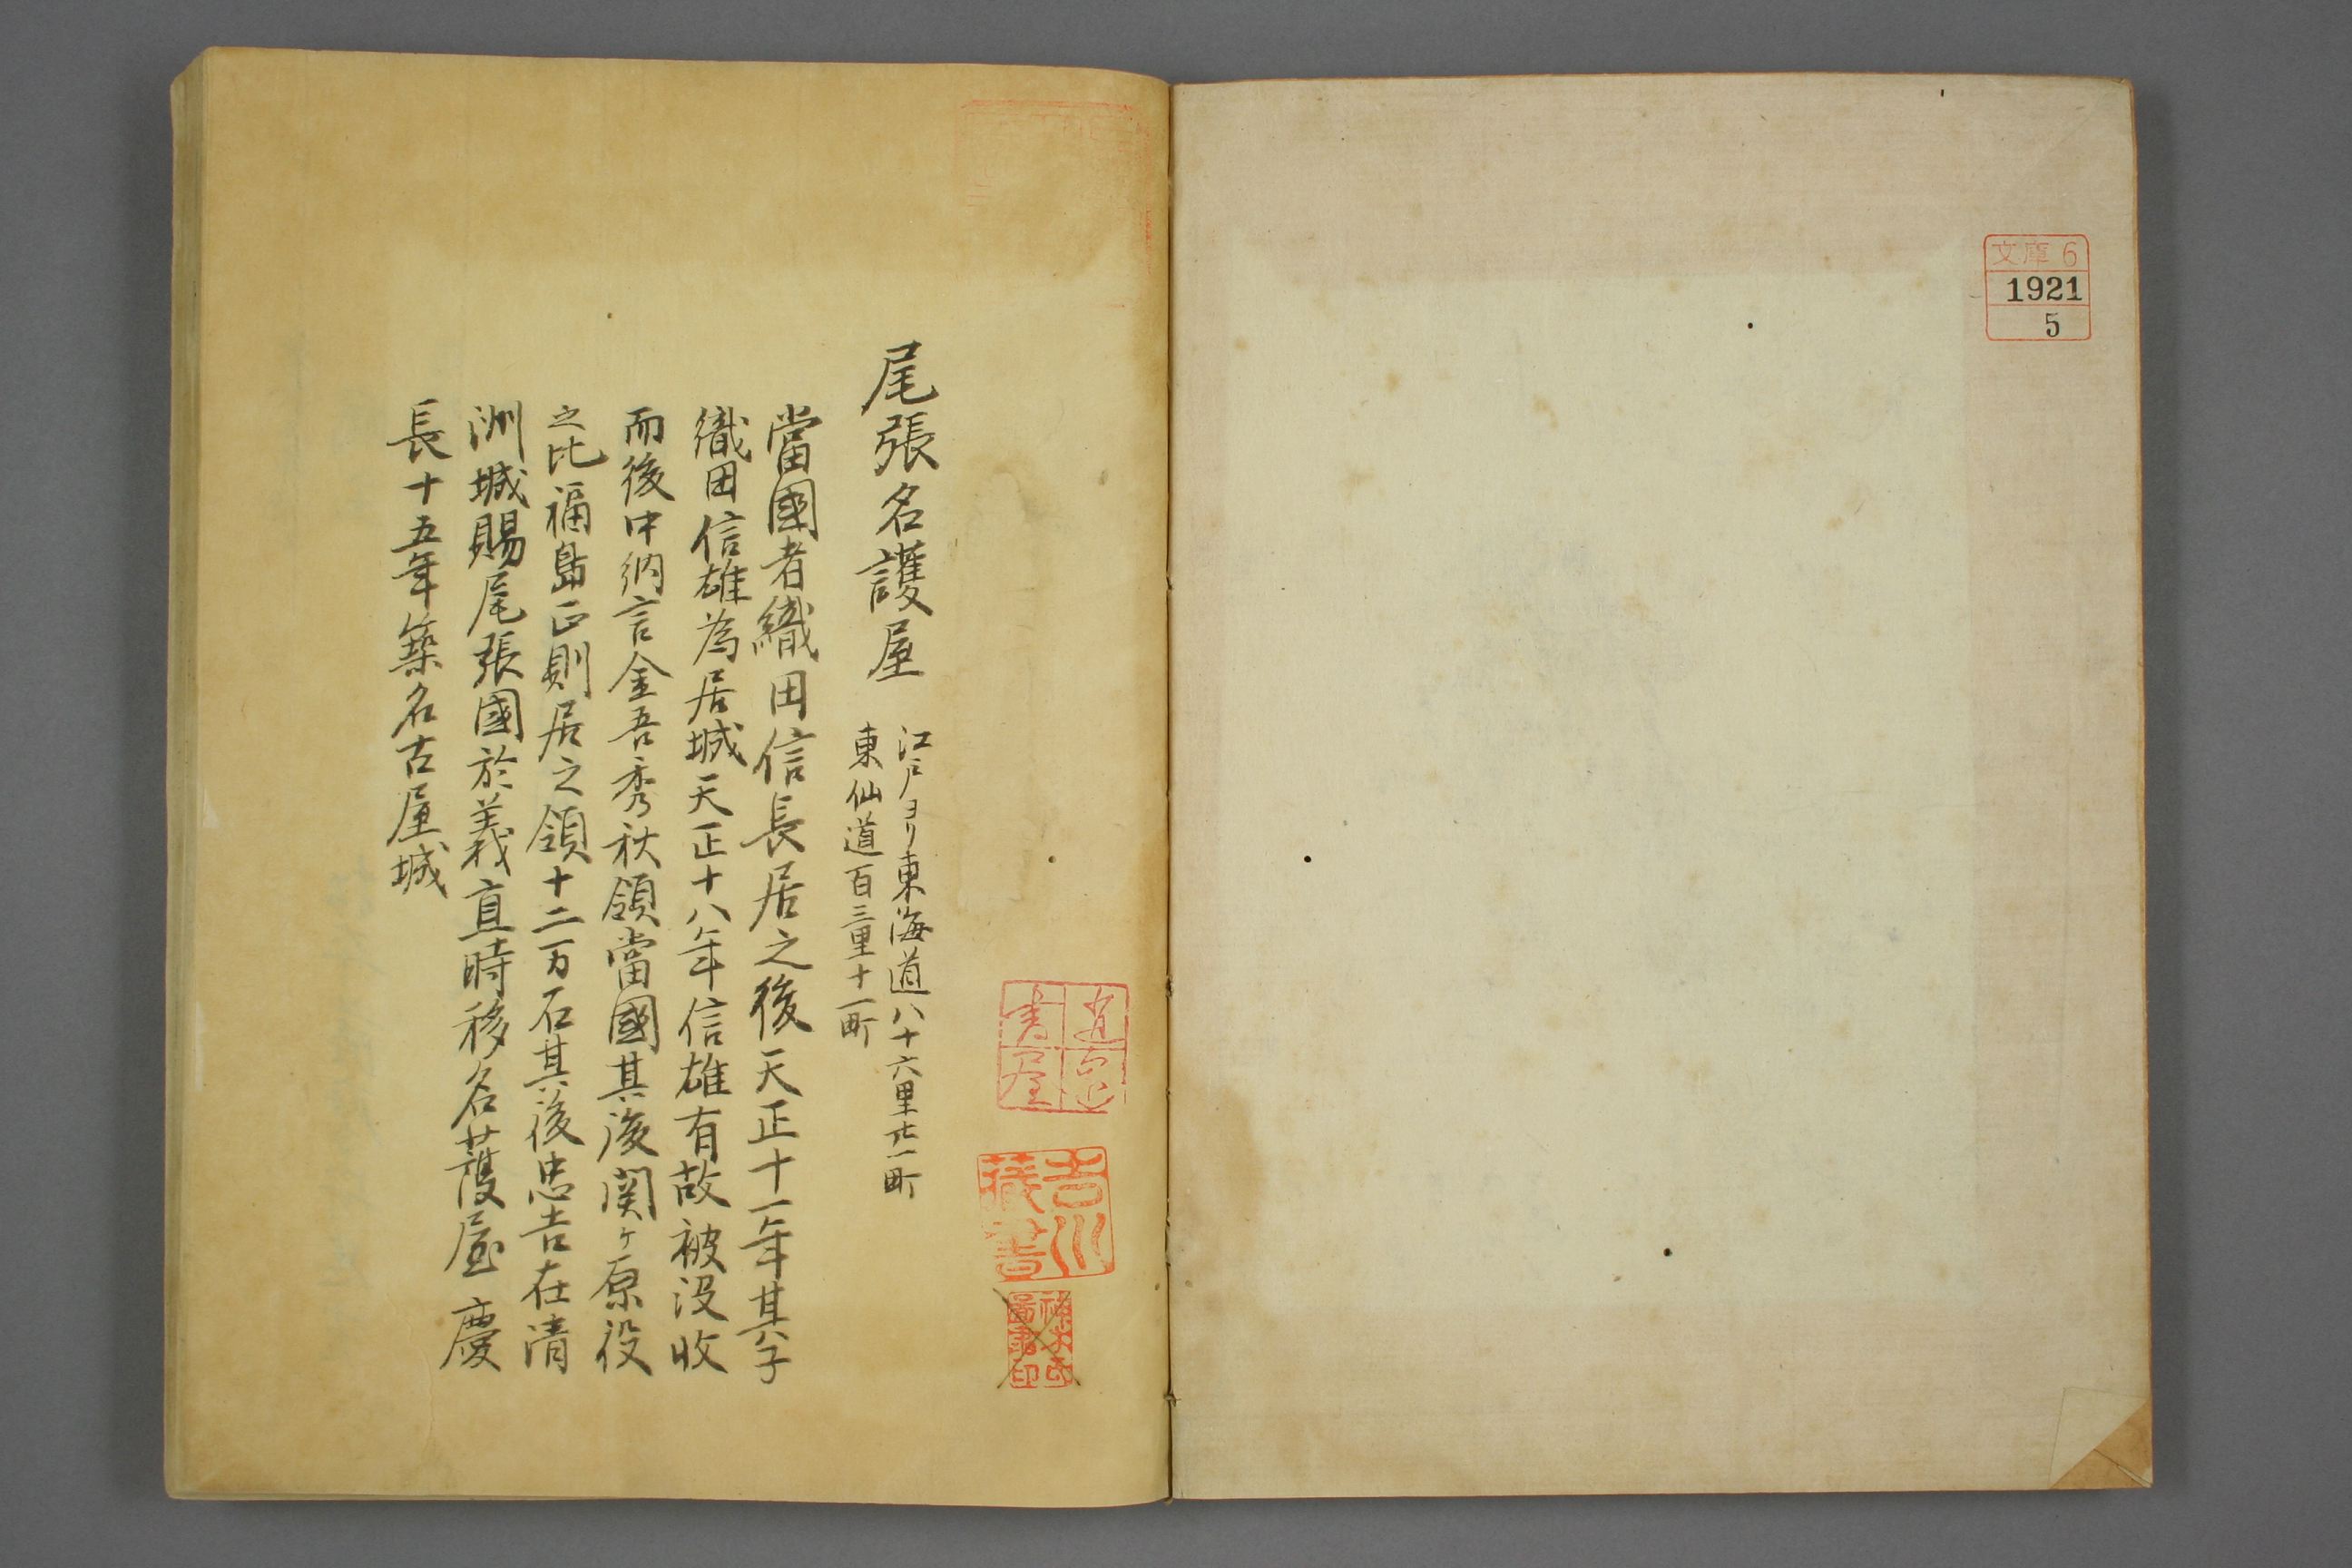 文庫6
1921
5
尾張名護屋
江戸ヨリ東海道八十六里廿一町
東仙道百三里十一町
當國者織田信長居之後天正十一年其子
織田信雄為居城天正十八年信雄有故被没收
而後中納言金吾秀秋領當國其後関ヶ原役
之比福島正則居之領十二万石其後忠吉在清
洲城賜尾張國於義直時移名護屋慶
長十五年築名古屋城
吉川
蔵書
圖書印